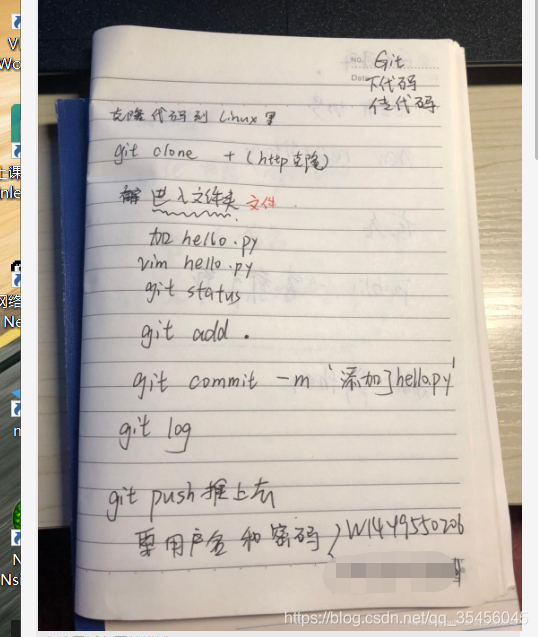 NO. Git
Date 下代码
传代码
克隆代码到 Linux 里
git clone + (http克隆)
进入文件夹 文件
加 hello.py
vim hello.py
git status
git add .
git commit -m '添加了hello.py'
git log
git push 推上去
要用户名和密码
https://blog.csdn.net/qq_35456045